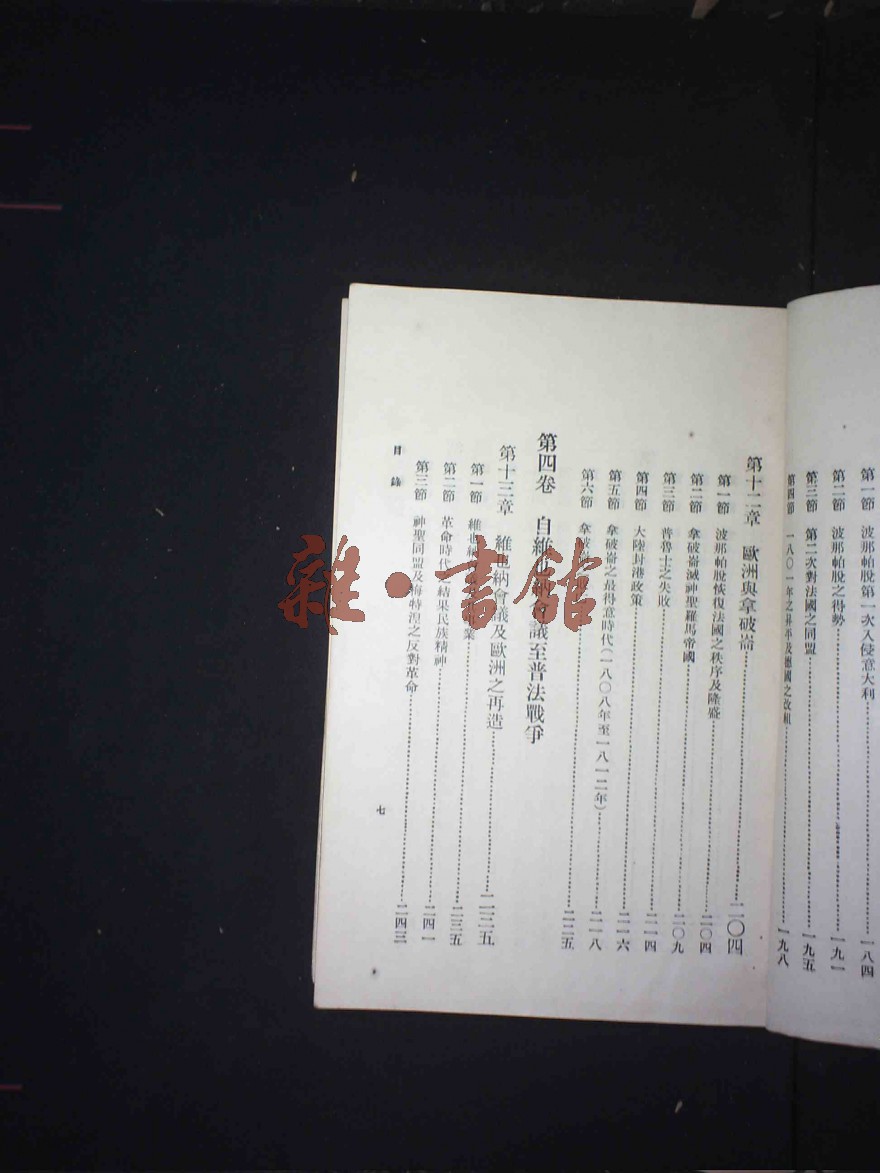 第一節 波那帕脫第一次入侵意大利 一八四
第二節 波那帕脫之得勢 一九一
第三節 第二次對法國之同盟 一九五
第四節 一八〇一年之昇平及德國之改組 一九八
第十二章 歐洲與拿破崙 二〇四
第一節 波那帕脫恢復法國之秩序及隆盛 二〇四
第二節 拿破崙滅神聖羅馬帝國 二〇九
第三節 普魯士之失敗 二一四
第四節 大陸封港政策 二一六
第五節 拿破崙之最得意時代(一八〇八年至一八一二年) 二一八
第六節 拿破 二二五
第四卷 自維也納會議至普法戰爭
第十三章 維也納會議及歐洲之再造 二三五
第一節 維也納 事業 二三五
第二節 革命時代之結果民族精神 二四一
第三節 神聖同盟及梅特涅之反對革命 二四三
目錄
七
雜·書館